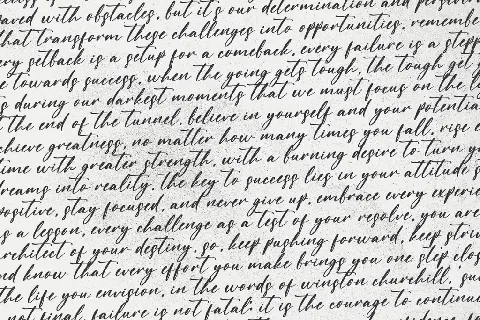 paved with obstacles, but it's our determination and
that transform these challenges into opportunities. remembe
ery setback is a setup for a comeback, every failure is a stepp
e towards success. when the going gets tough, the tough get
s during our darkest moments that we must focus on the
the end of the tunnel. believe in yourself and your potentia
chieve greatness. no matter how many times you fall, rise e
time with greater strength, with a burning desire to turn
dreams into reality. the key to success lies in your attitude
positive, stay focused, and never give up. embrace every experie
s a lesson, every challenge as a test of your resolve. you are
rchitect of your destiny. so, keep pushing forward, keep striv
nd know that every effort you make brings you one step clos
the life you envision. in the words of winston churchill, 'su
not final, failure is not fatal: it is the courage to continue